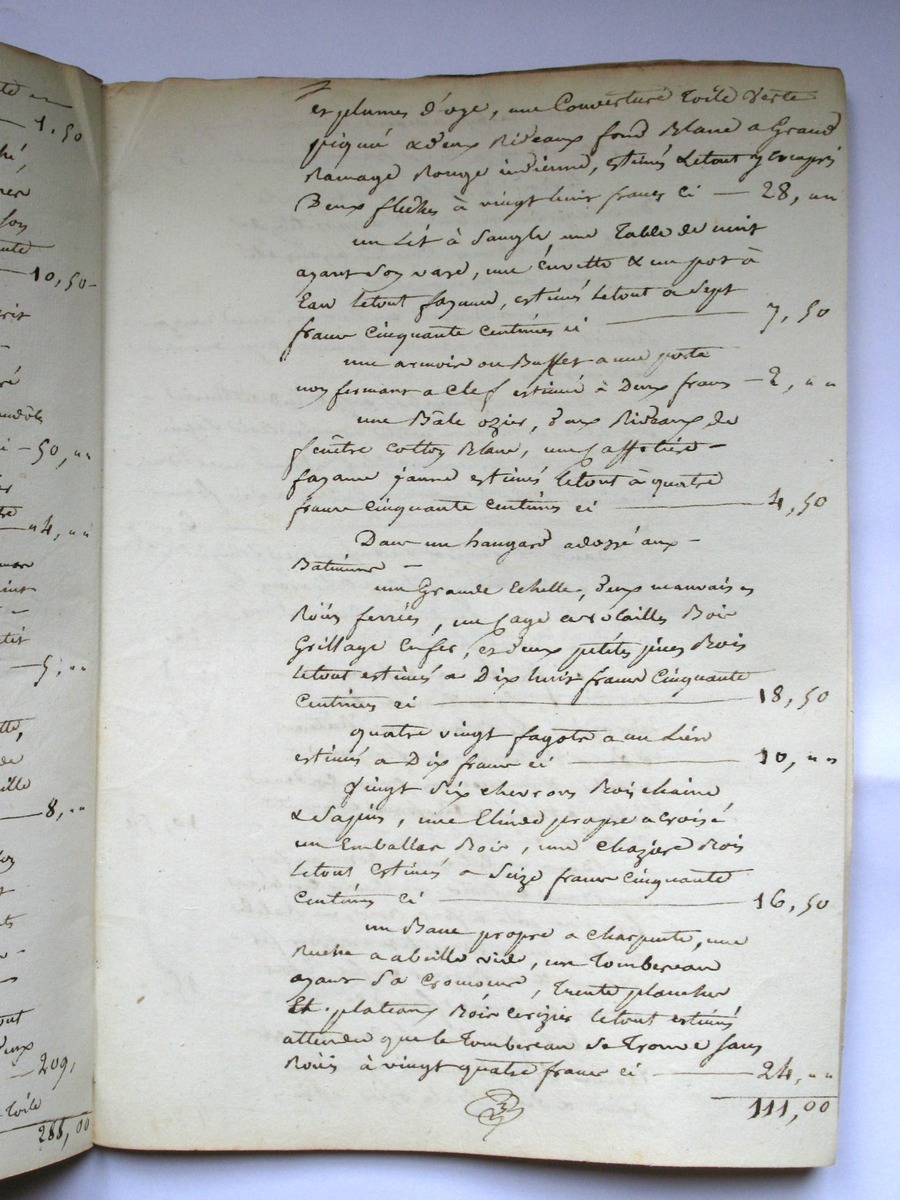 te un
1,50
hé,
10,50
50,""
4,""
5,""
8,""
209,
toile
288,00
et plumes d'oye, une Couverture toile verte
piquée & deux Rideaux fond Blanc a Grand
Ramage Rouge indienne, estimés Letout y compris
Deux fleches à vingt huit francs ci — 28, ""
un Lit à Sangle, une Table de nuit
ayant Son vase, une Cuvette & un pot à
Eau letout fayance, estimés Letout a Sept
francs Cinquante Centimes ci — 7,50
une armoire ou Buffet a une porte
non fermant a Clef estimé à Deux francs — 2, ""
une Bâle ozier, deux Rideaux de
fenêtre Cotton Blanc, une Caffetiere
fayance jaune estimés letout à quatre
francs Cinquante Centimes ci — 4,50
Dans un hangard adossé aux
Batimens —
une Grande Echelle, deux mauvaises
Roües ferrées, une Cage a volailles Bois
Grillage Enfer, et deux petites piles Bois
letout estimés a Dix huit francs Cinquante
Centimes ci — 18,50
quatre vingt fagots a un Lien
estimés a Dix francs ci — 10, ""
Vingt Six chevrons Bois chaine
& Sapin, une propre a Croisé
un Emballas Bois, une Bois
letout Estimés a Seize francs Cinquante
Centimes Ci — 16,50
un Banc propre a Charpente, une
Ruche a abeille vide, un Tombereau
ayant Sa, Trente planches
Et plateaux Bois Cerizier letout estimés
attendu que le Tombereau Se Trouve Sans
Roües à vingt quatre francs ci — 24, ""
111,00